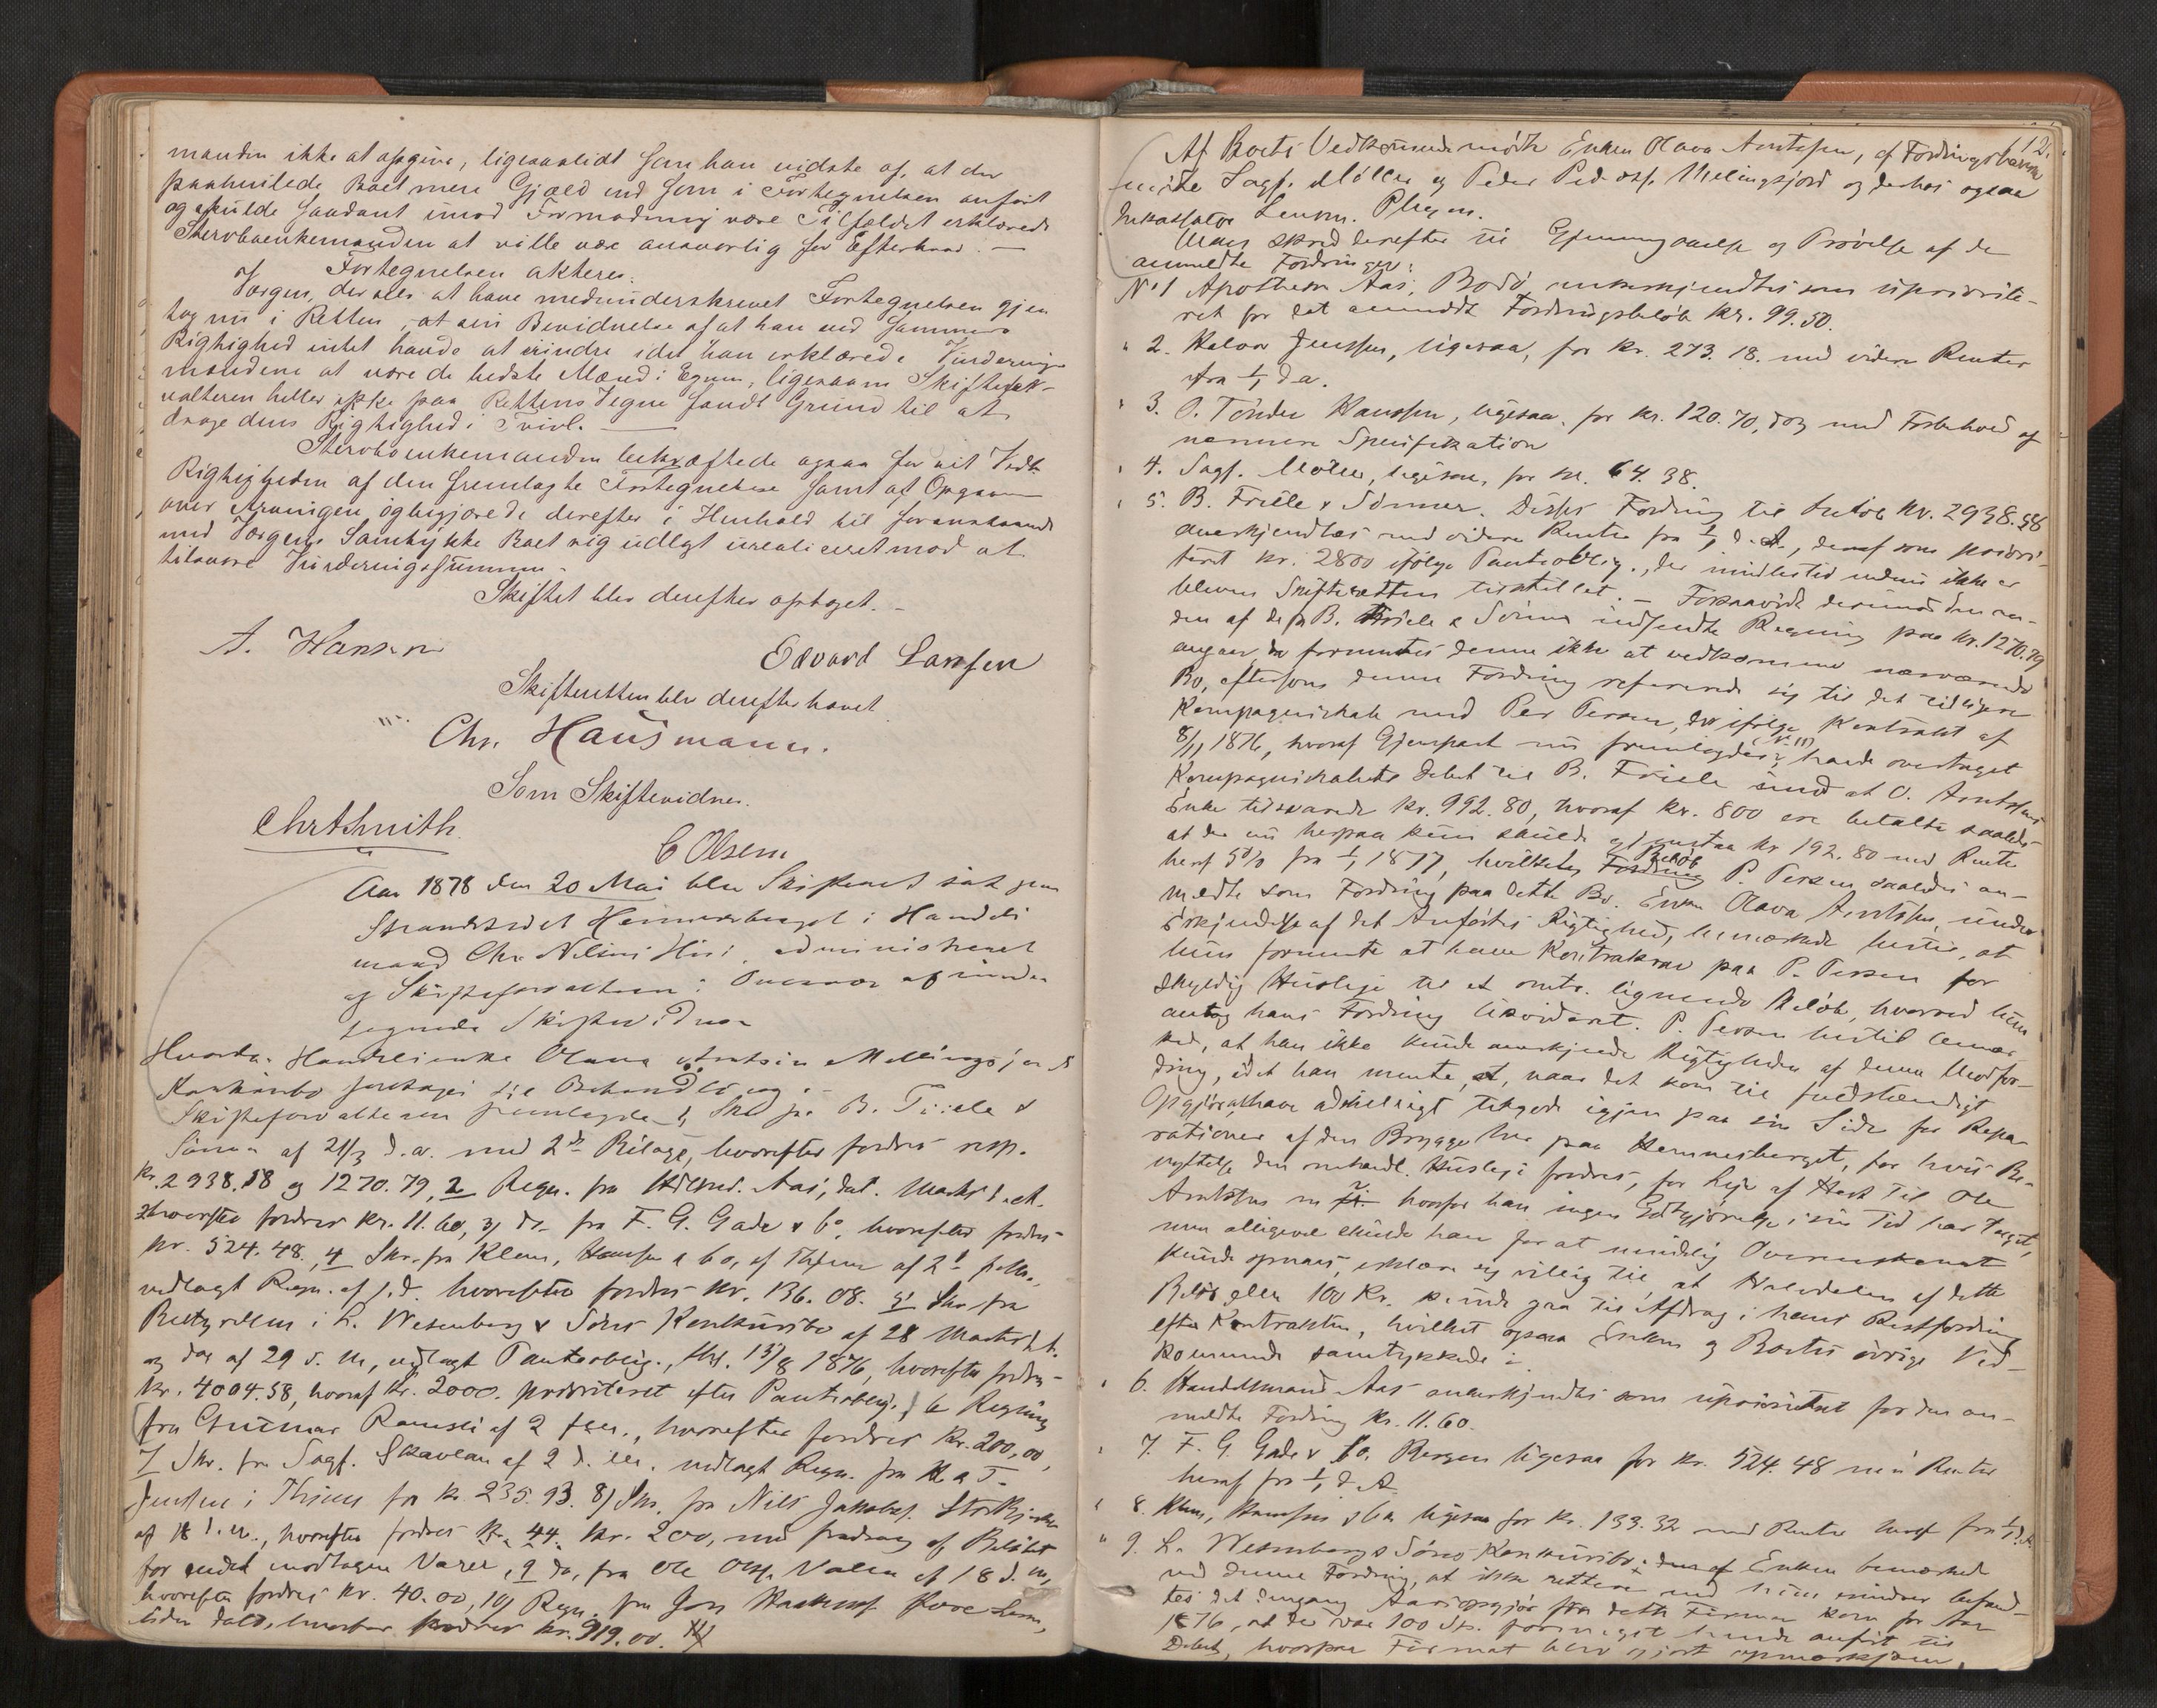 manden ikke at opgive, ligesaalidt som han vidste af, at der
paahvilede Boet mere Gjæld end som i Fortegnelsen anført
og skulde saadant imod Formodning være Tilfældet erklærede
Stervboenkemanden at ville være ansvarlig for Efterkrav. —
Fortegnelsen akteres.
Værgen, der sees at have medunderskrevet Fortegnelsen gjen
tog nu i Retten, at sin Bevidnelse af at han ved Sammes
Rigtighed intet havde at erindre idet han erklærede Vurderings
mændene at være de bedste Mænd i Egnen, ligesom Skiftefor-
valteren heller ikke paa Rettens Vegne fandt Grund til at
drage dens Rigtighed i Tvivl. —
Stervboenkemanden bekræftede ogsaa for sit Vedk.
Rigtigheden af den fremlagte Fortegnelse samt af Opgaven
over Arvingen og begjærede derefter i Henhold til foranstaaende
med Værgens Samtykke Boet sig udlagt urealiseret mod at
tilsvare Vurderingssummen. -
Skiftet blev derefter optaget. -
A. Hansen Edvard Larssen
Skifteretten blev derefter hævet
Chr. Hausmann.
Som Skiftevidner.
Chr A Smith.
C Olsen
Aar 1878 den 20 Mai blev Skifteret sat paa
Strandstedet Hemnesberget i Handels
mand Chr. Nilsens Hus, administreret
af Skifteforvalteren i Overvær af under
tegnede Skiftevidner
Hvorda: Handelsenke Olava Arntsen Mellingsjord
Konkursbo foretages til Behandling. -
Skifteforvalteren fremlagde 1, Skr. fra B. Friele &
Sønner af 21/3 d.a. med 2de Bilage, hvorefter fordres resp.
Kr. 2938.58 og 1270.79, 2 Regn. fra Hdlsmd. Aas, dat. Marts d. A.
hvorefter fordres Kr. 11.60, 3) do fra F. G. Gade & Co, hvorefter fordres
Kr. 524.48, 4 Skr. fra Klem, Hansen & Co, af Thjem af 2d
vedlagt Regn. af s.d. hvorefter fordres Kr. 136.08. 5 Skr fra
Bestyrelsen i L. Wesenberg & Søns Konkursbo af 28 Marts
og do af 29 s. M, vedlagt Panteoblig., thgl. 15/8 1876, hvorefter fordres
Kr. 4004.58, hvoraf Kr. 2000. prioriteret efter Panteoblig. 6 Regning
fra Gunnar af 2 , hvorefter fordres Kr. 200,00,
7 Skr. fra Sagf. Skavlan af 2 d. M. vedlagt Regn. fra H. & T.
Jenssen i Thjem for Kr. 235.93. 8) Skr. fra Nils Jakobs.
af 18 d. M., hvorefter fordres Kr. 44. Kr. 200, med Fradrag af Beløbet
for endel modtagne Varer, 9 do, fra Ole Olss. Valen af 18 d. m,
hvorefter fordres Kr. 40.00, 10) Regn. fra Jon
uden Dato, hvorefter fordres Kr. 919.00.
112.
Af Boets Vedkommende mødte Enken Olava Arntssen, af Fordringshaverne
mødte Sagf. Møller og Peder Pederss. Mellingsjord og derhos ogsaa
Inkassator Lensm.
Man skred derefter til Gjennemgaaelse og Prøvelse af de
anmeldte Fordringer:
No 1 Apotheker Aas, Bodø, anerkjendtes som uprioriteret-
ret for det anmeldte Fordringsbeløb Kr. 99.50.
" 2. Halvor Jenssen, ligesaa, for Kr. 273.18. med videre Renter
fra 1/1 d. a.
" 3. O. Tønder Hanssen, ligesaa, for Kr. 120.70, dog med Forbehold af
nærmere Spesifikation
" 4. Sagf. Møller, ligesaa, for Kr. 64.38.
" 5. B. Friele & Sønner. Disses Fordring til Beløb Kr. 2938.58
anerkjendtes med videre Renter fra 1/1 d. A., deraf som priori-
teret Kr. 2800 ifølge Panteoblig., der imidlertid endnu ikke er
bleven Skifteretten tilstillet. — Forsaavidt derimod den an-
den af de fra B. Friele & Sønner indsendte Regning paa Kr. 1270.79
angaar, da formentes denne ikke at vedkomme nærværende
Bo, eftersom denne Fordring refererede sig til det tidligere
Kompagniskab med Per Persen, der ifølge Kontrakt af
8/11 1876, hvoraf Gjenpart nu fremlagdes, (No 11) havde overtaget
Kompagniskabets Debet til B. Friele imod at O. Arntssens
Enke tilsvarede Kr. 992.80, hvoraf Kr. 800 ere betalte saaledes
at der nu herpaa kun skulde gjenstaa Kr 192.80 med Renter
heraf 5% fra 1/1 1877, hvilket Fordring Beløb P. Persen saaledes an-
meldte som Fordring paa dette Bo. Enken Olava Arntssen, under
Erkjendelse af det Anførtes Rigtighed, bemærkede hertil, at
hun formente at have Kontrakrav paa P. Persen for
skyldig Husleje til et omtr. lignende Beløb, hvorved hun
antog hans Fordring likvideret. P. Persen hertil bemær-
ked, at han ikke kunde anerkjende Rigtigheden af denne Modfor-
dring, idet han mente, at, naar det kom til fuldstændigt
Opgjør, at have adskilligt tilgode igjen paa sin Side for Repa-
rationer af den Brygge her paa Hemnesberget, for hvis Be-
nyttelse den omhandl. Husleje fordres, for Leje af Hest til Ole
Arntssen m. v. hvorfor han ingen Godtgjørelse i sin Tid har faaet,
men alligevel skulde han for at mindelig Overenskomst
kunde opnaaes, erklære sig villig til at Halvdelen af dette
Beløb eller 100 Kr. kunde gaa til Afdrag i hans Restfordring
efter Kontrakten, hvilket ogsaa Enken og Boets øvrige Ved-
kommende samtykkede i.
" 6. Handelsmand Aas anerkjendtes som uprioriteret for den an-
meldte Fordring Kr. 11.60.
" 7. F. G. Gade & Co. Bergen ligesaa for Kr. 524.48 med Renter
heraf fra 1/1 d. A.
" 8. Klem, Hanssen & Co ligesaa for Kr. 133.32 med Renter heraf fra 1/1 d. A.
" 9. L. Wesenberg & Søns Konkursbo: Enken bemærkede
ved denne Fordring, at ikke rettere end hun mindes befand-
tes det dengang Aarsopgjør fra dette Firma kom for Aar
1876, at der var 100 Sp. formeget anført til
Debet, hvorpaa Firmaet blev gjort opmærksom,